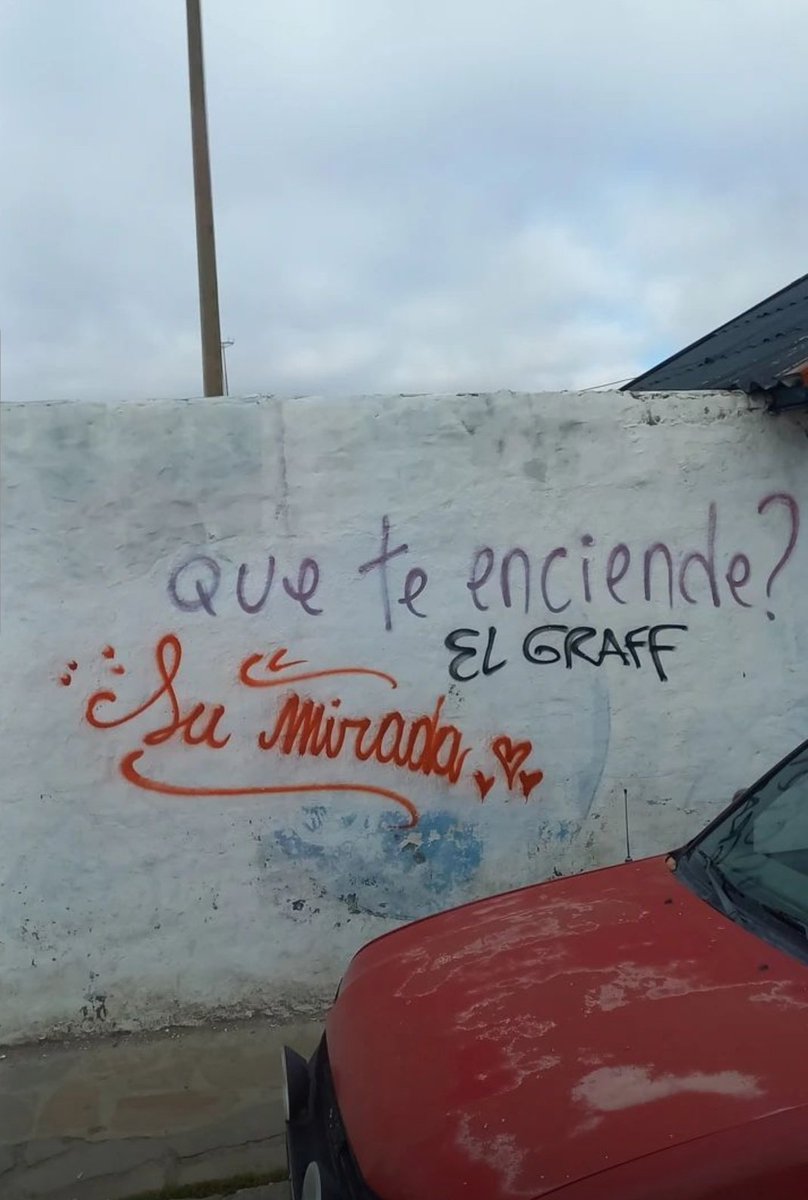 Que te enciende?
EL GRAFF
Su mirada